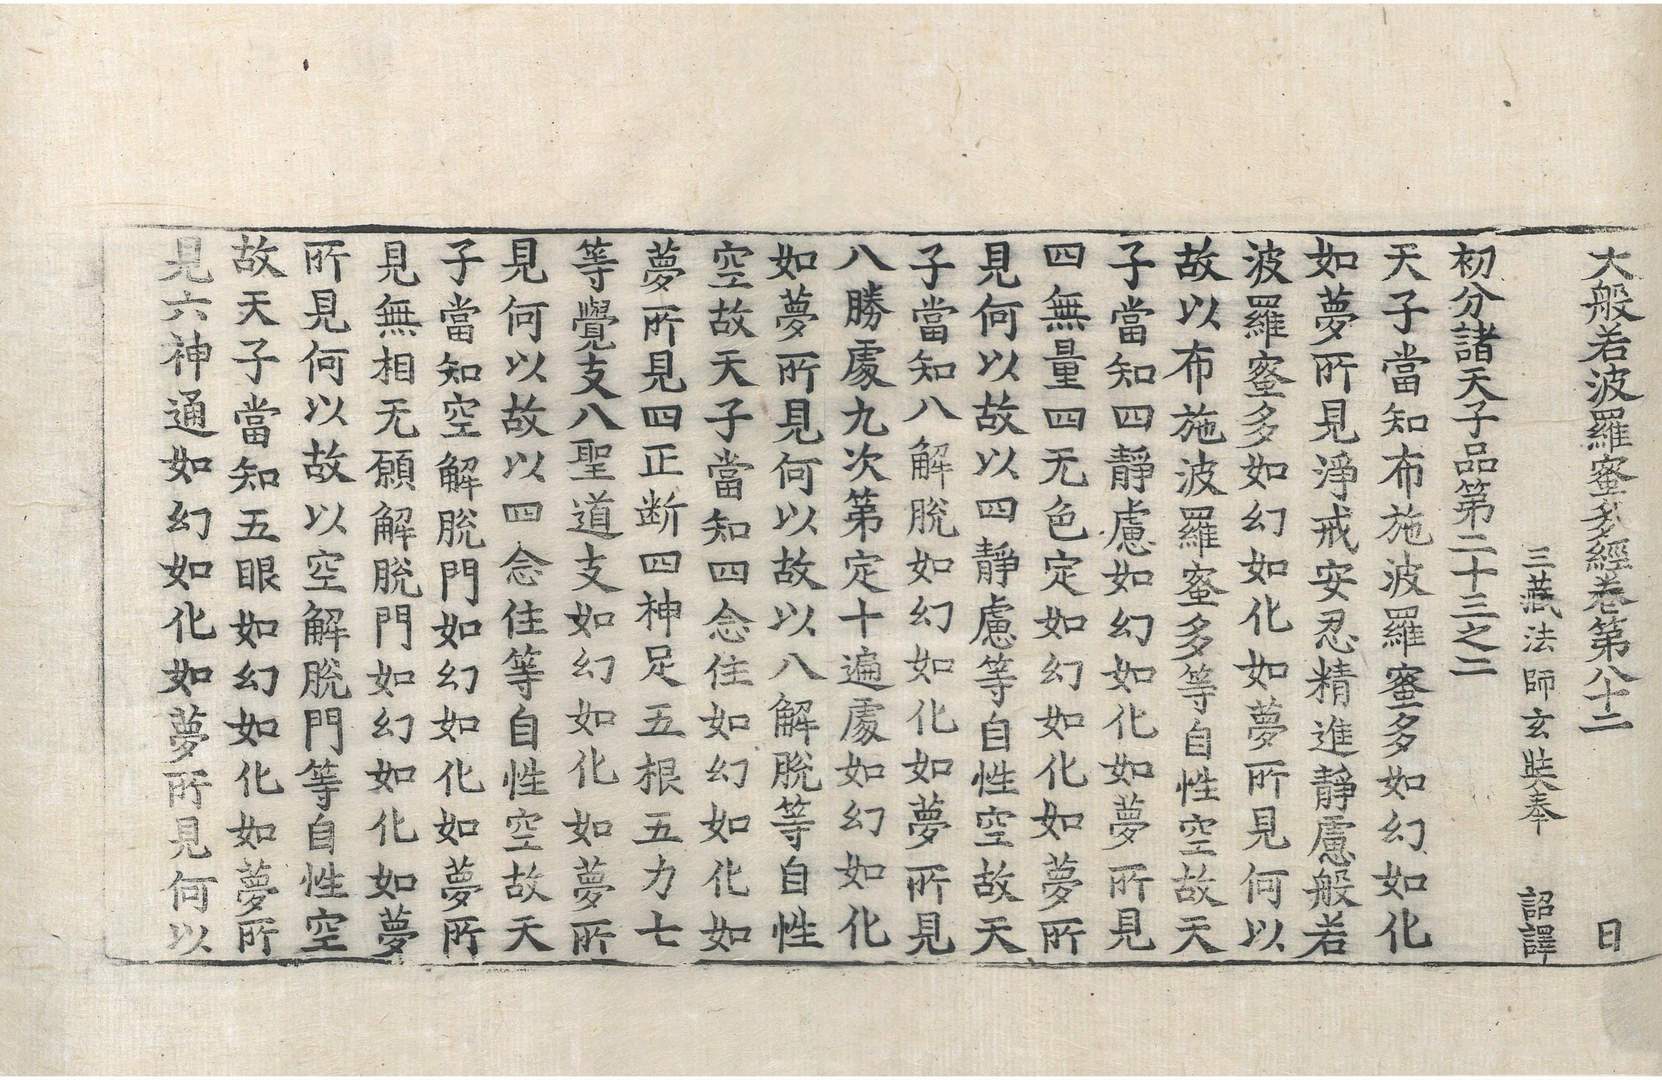 大般若波羅蜜多經卷第八十二 日
三藏法師玄奘奉 詔譯
初分諸天子品第二十三之二
天子當知布施波羅蜜多如幻如化
如夢所見淨戒安忍精進靜慮般若
波羅蜜多如幻如化如夢所見何以
故以布施波羅蜜多等自性空故天
子當知四靜慮如幻如化如夢所見
四無量四无色定如幻如化如夢所
見何以故以四靜慮等自性空故天
子當知八解脫如幻如化如夢所見
八勝處九次第定十遍處如幻如化
如夢所見何以故以八解脫等自性
空故天子當知四念住如幻如化如
夢所見四正断四神足五根五力七
等覺支八聖道支如幻如化如夢所
見何以故以四念住等自性空故天
子當知空解脫門如幻如化如夢所
見無相无願解脫門如幻如化如夢
所見何以故以空解脫門等自性空
故天子當知五眼如幻如化如夢所
見六神通如幻如化如夢所見何以